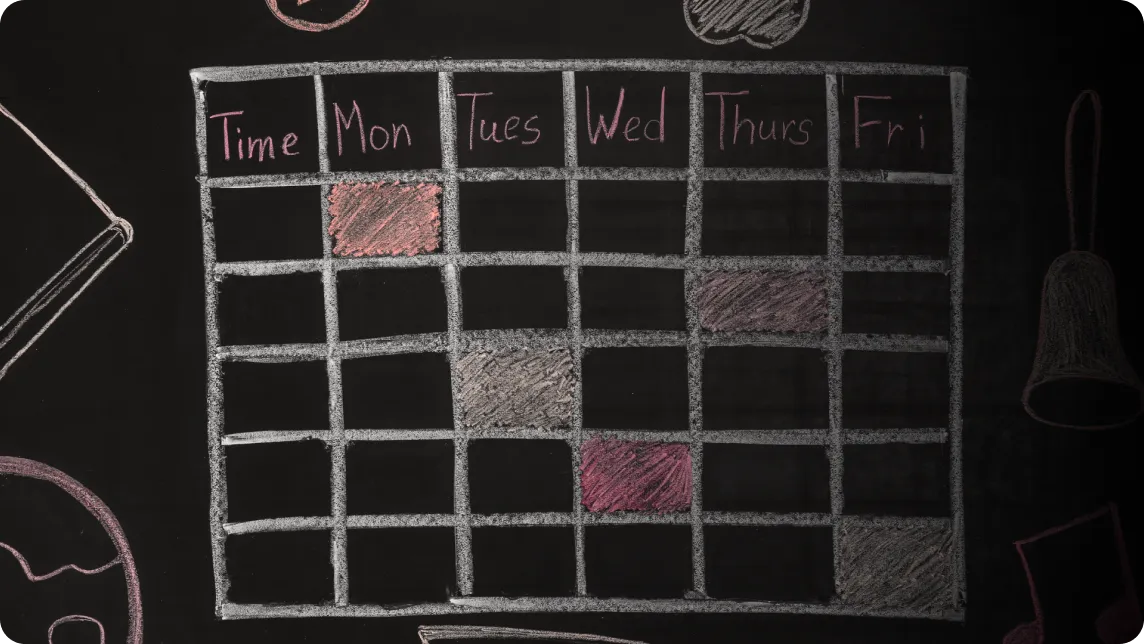 Time Mon Tues Wed Thurs Fri